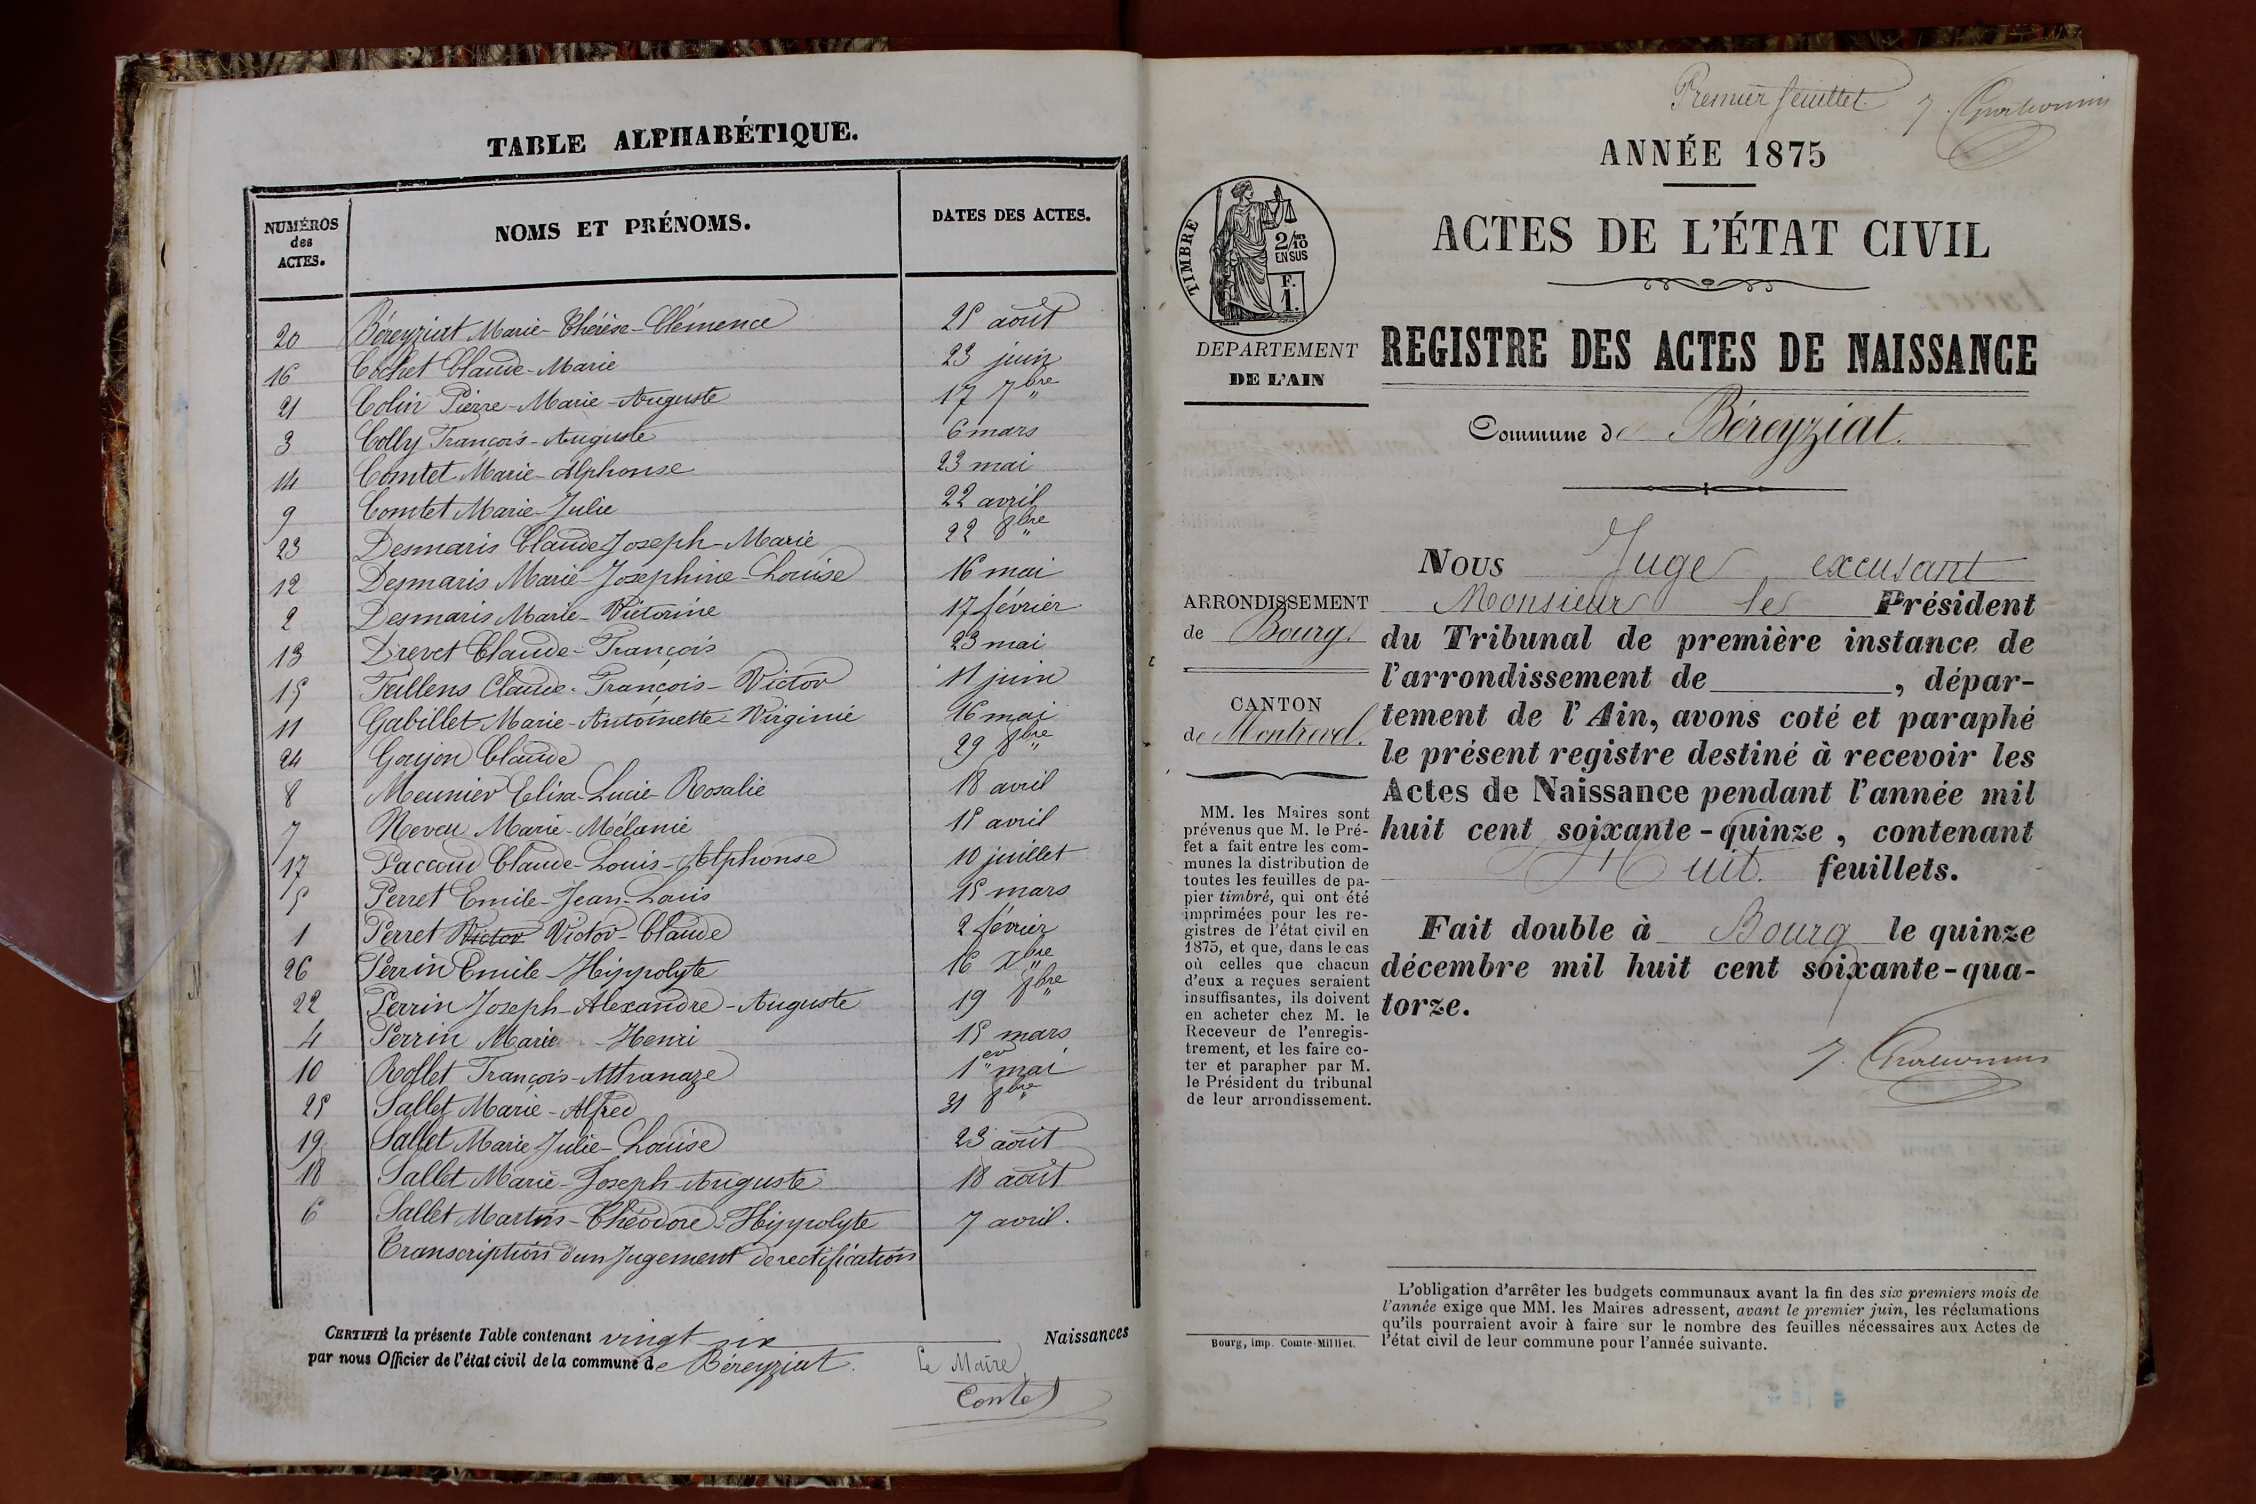 TABLE ALPHABÉTIQUE.
NUMÉROS des ACTES. NOMS ET PRÉNOMS. DATES DES ACTES.
20 Béreyziat Marie-Thérèse-Clémence 25 août
16 Cochet Claude-Marie 23 juin
21 Colin Pierre-Marie-Auguste 17 7bre
3 Colly François-Auguste 6 mars
14 Comtet Marie-Alphonse 23 mai
9 Comtet Marie-Julie 22 avril
23 Desmaris Claude Joseph-Marie 22 8bre
12 Desmaris Marie-Josephine-Louise 16 mai
2 Desmaris Marie-Victorine 17 février
13 Drevet Claude-François 23 mai
15 Feillens Claude-François-Victor 11 juin
11 Gabillet Marie-Antoinette-Virginie 16 mai
24 Goujon Claude 29 8bre
8 Meunier Elisa-Lucie-Rosalie 18 avril
7 Neveu Marie-Mélanie 15 avril
17 Paccoud Claude-Louis-Alphonse 10 juillet
5 Perret Emile-Jean-Louis 15 mars
1 Perret Victor Victor-Claude 2 février
26 Perrin Emile-Hippolyte 16 Xbre
22 Perrin Joseph-Alexandre-Auguste 19 8bre
4 Perrin Marie-Henri 15 mars
10 Rollet François-Attranaze 1er mai
25 Sallet Marie-Alfred 31 8bre
19 Sallet Marie Julie-Louise 23 août
18 Sallet Marie-Joseph-Auguste 18 août
6 Sallet Martin-Théodore-Hippolyte 7 avril.
Transcription d'un Jugement de rectification
CERTIFIÉ la présente Table contenant vingt six Naissances
par nous Officier de l'état civil de la commune de Béreyziat.
Le Maire
Comtet
Premier feuillet
ANNÉE 1875
ACTES DE L'ÉTAT CIVIL
TIMBRE
2/10 EN SUS
F. 1.
DEPARTEMENT
DE L'AIN
REGISTRE DES ACTES DE NAISSANCE
Commune de Béreyziat.
ARRONDISSEMENT
de Bourg
CANTON
de Montrevel.
MM. les Maires sont
prévenus que M. le Pré-
fet a fait entre les com-
munes la distribution de
toutes les feuilles de pa-
pier timbré, qui ont été
imprimées pour les re-
gistres de l'état civil en
1875, et que, dans le cas
où celles que chacun
d'eux a reçues seraient
insuffisantes, ils doivent
en acheter chez M. le
Receveur de l'enregis-
trement, et les faire co-
ter et parapher par M.
le Président du tribunal
de leur arrondissement.
Bourg, imp. Comte-Milliet.
Nous Juge excusant
Monsieur le Président
du Tribunal de première instance de
l'arrondissement de , dépar-
tement de l'Ain, avons coté et paraphé
le présent registre destiné à recevoir les
Actes de Naissance pendant l'année mil
huit cent soixante-quinze, contenant
Huit feuillets.
Fait double à Bourg le quinze
décembre mil huit cent soixante-qua-
torze.
L'obligation d'arrêter les budgets communaux avant la fin des six premiers mois de
l'année exige que MM. les Maires adressent, avant le premier juin, les réclamations
qu'ils pourraient avoir à faire sur le nombre des feuilles nécessaires aux Actes de
l'état civil de leur commune pour l'année suivante.